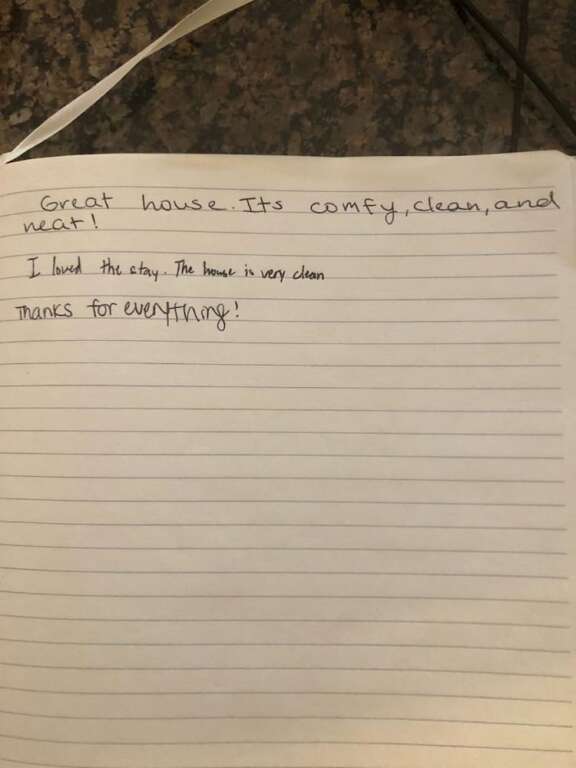 Great house. Its comfy, clean, and
neat!
I loved the stay. The house is very clean
Thanks for everything!